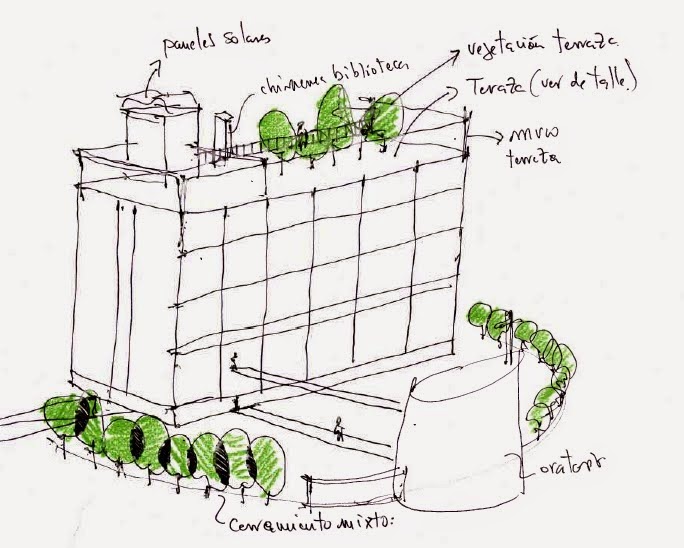 paneles solares
chimenea biblioteca
vegetación terraza
Terraza (ver detalle)
muro
terraza
oratorio
cerramiento mixto: